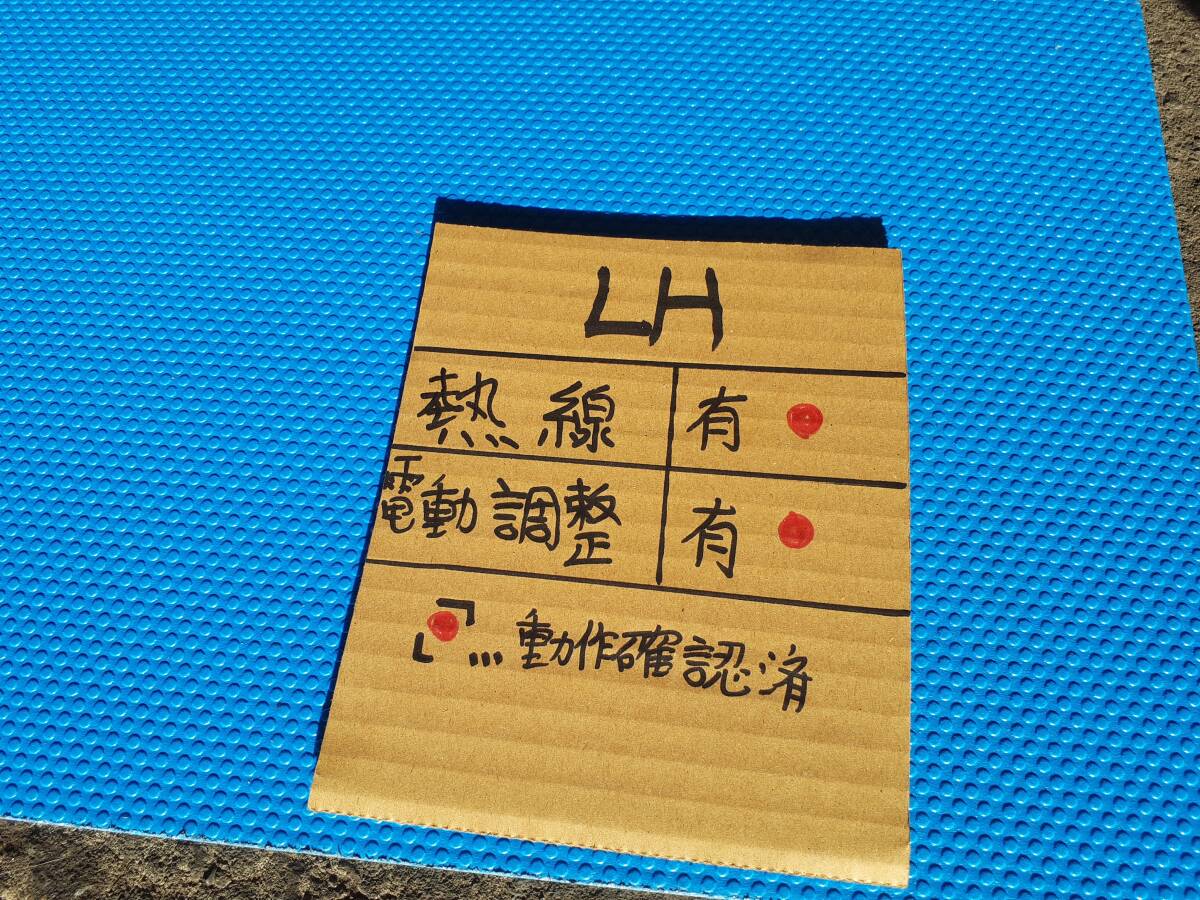 LH
熱線 有 ●
電動調整 有 ●
「●」…動作確認済